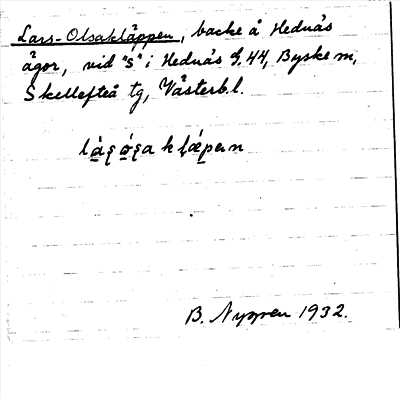 Lars-Olsakläppen, backe å Hednäs
ägor, vid "S" i Hednäs S, 44, Byske m,
Skellefteå tg, Västerb.l.
B. Nygren 1932.